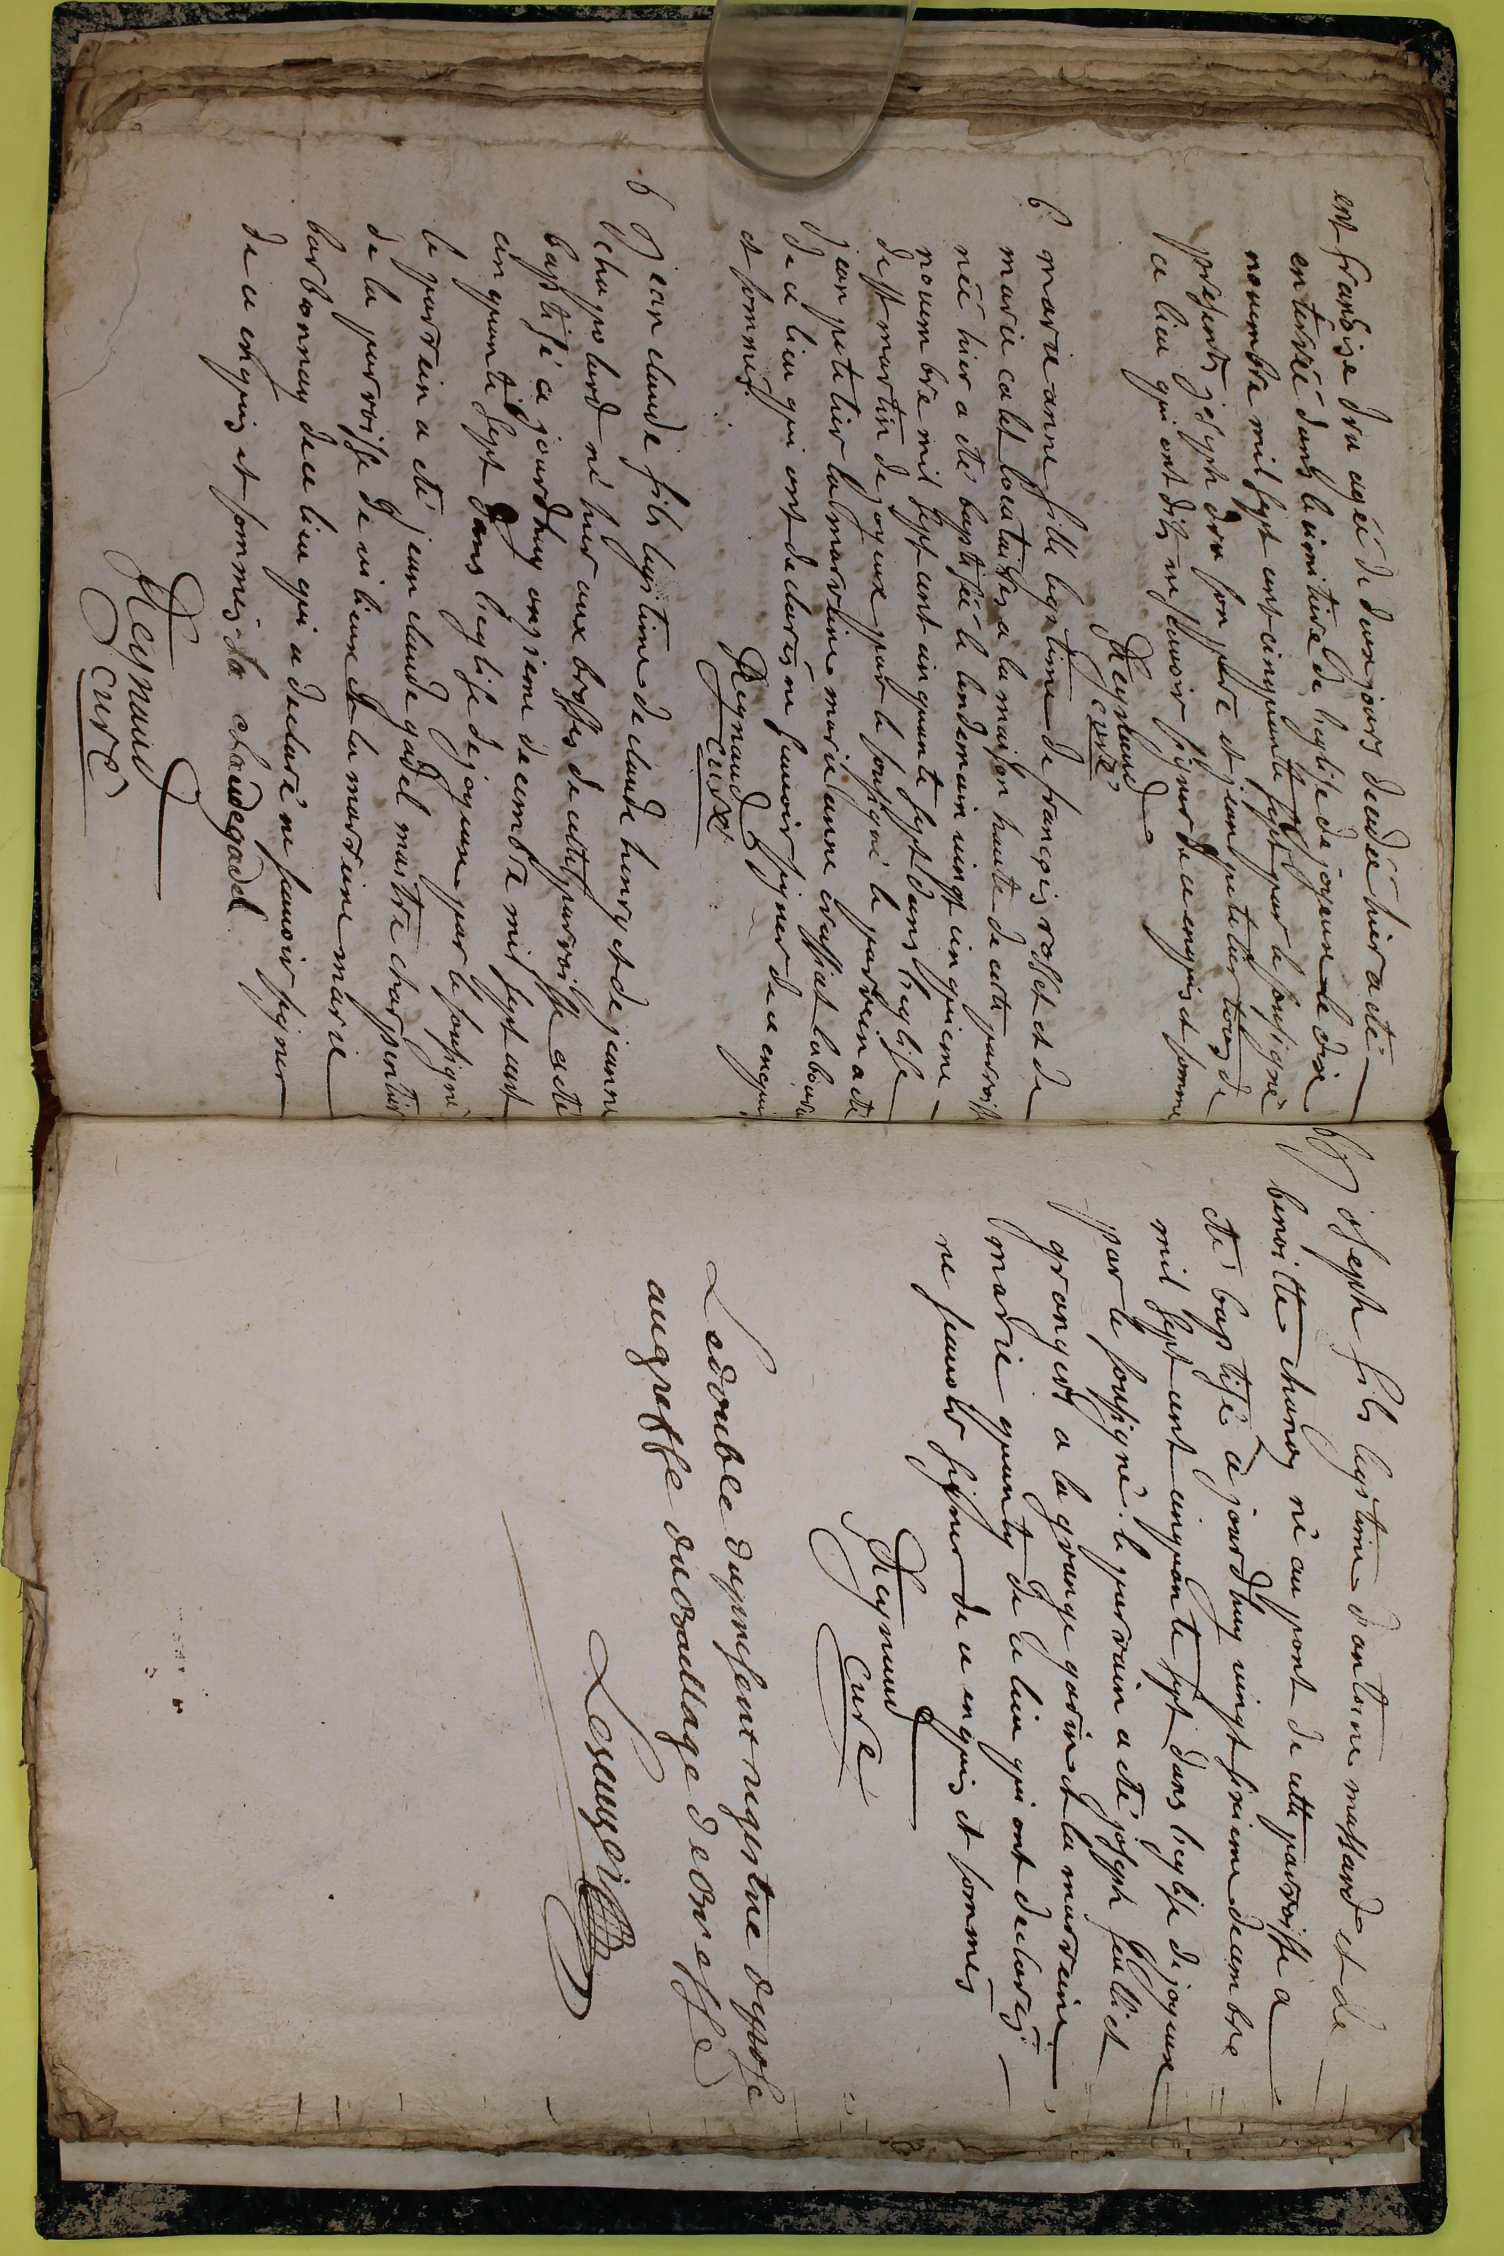 ent françoise dra agée de deux jours decedéé hier a ete
enterréé dans le cimitiere de l'eglise de joyeux le dix
novembre mil sept cent cinquante sept par le soussigné
presents joseph dra son pere et jean petitier tous de
ce lieu qui ont dits ne scavoir signer de ce enquis et sommé
Reynaud
curé
b marie anne fille legitime de françois rosset et de
marie calet locataires a la maison haute de cette parroisse
néé hier a eté baptiséé le lendemain vingt cinquieme
novembre mil sept cent cinquante sept dans l'eglise
de st martin de joyeux par le soussigné le parrein a eté
jean petitier la marreine marie anne crassiat laboureur
de ce lieu qui ont declarés ne scavoir signer de ce enquis
et sommés.
Reynaud
curé
b jean claude fils legitime de claude henry et de jeanne
chapolard né hier aux brosses de cette parroisse a eté
baptisé ce jourdhuy onzieme decembre mil sept cent
cinquante sept dans l'eglise de joyeux par le soussigné
le parrein a eté jean claude gadel maitre charpentier
de la parroisse de ce lieux la marreine marie
barbonnay de ce lieu qui a declaré ne scavoir signer
de ce enquis et sommés claudegadel
Reynaud
curé
b joseph fils legitime d'antoine massard et de
benoitte chanay né au pont de cette parroisse a
eté baptisé a jourdhuy vingt sixieme decembre
mil sept cent cinquante sept dans l'eglise de joyeux
par le soussigné. le parrein a eté joseph feulliet
granger a la grange garin et la marreine
marie quanty de ce lieu qui ont declarés
ne scavoir signer de ce enquis et sommés
Reynaud
curé
Ledouble dupresent registre deposé
augreffe dubailliage debresse